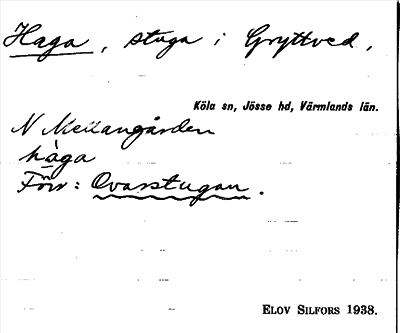 Haga, stuga i Gryttved.
Köla sn, Jösse hd, Värmlands län.
N Mellangården
hàga
Förr: Ovarstugan.
ELOV SILFORS 1938.